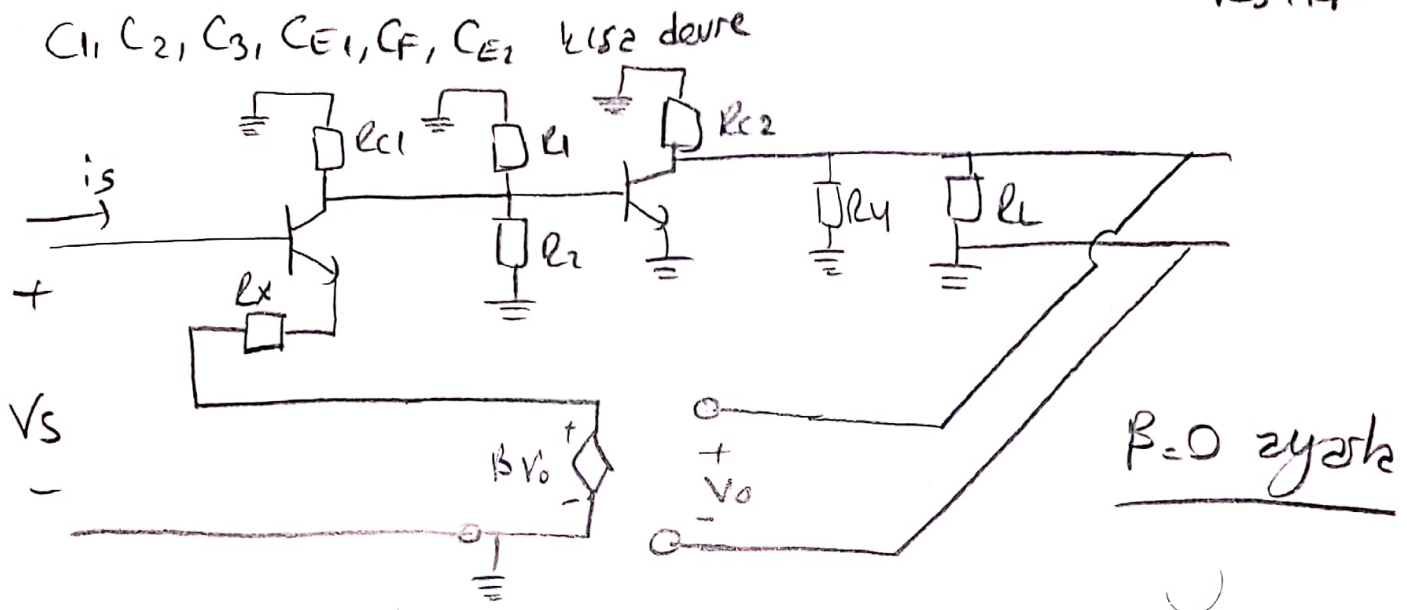 C1, C2, C3, CE1, CF, CE2 kısa devre
RC1
R1
RC2
is
R2
Ry
RL
+
Rx
Vs
-
+
BVo
-
+
Vo
-
β=0 ayarla